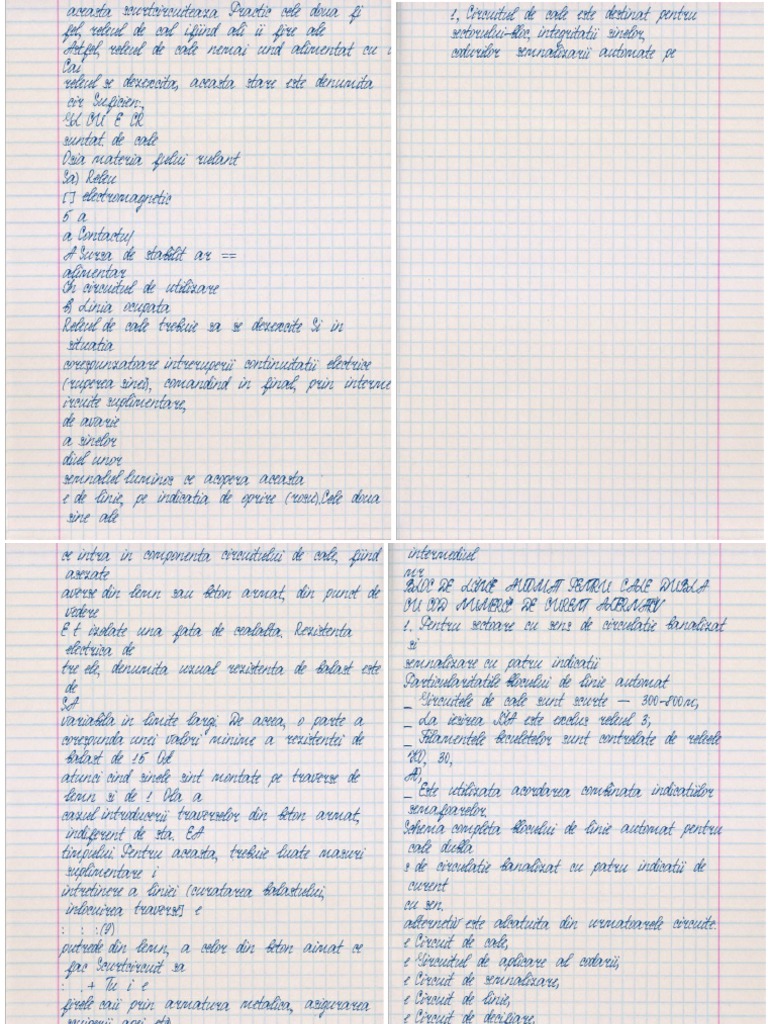 aceasta scurtcircuiteaza Practic cele doua fi
fel, releul de cal ifiind ali ii fire ale
Astfel, releul de cale nemai und alimentat cu
Cai
releul se dezexcita, aceasta stare este denumita
cir Suficien,
suntat. de cale
Osia materia fului rulant
Sa) Releu
[] electromagnetic
5 a
a Contactul
A Sursa de stabilit ar ==
alimentar
Ch circuitul de utilizare
b) Linia ocupata
Releul de cale trebuie sa se dezexcite Si in
situatia
corespunzatoare intreruperii continuitatii electrice
(ruperea sinei), comandind in final, prin interme
ircuite suplimentare,
de avarie
a sinelor
diul unor
semnalul luminos ce acopera aceasta
e de linie, pe indicatia de oprire (rosu).Cele doua
sine ale
1. Circuitul de cale este destinat pentru
sectorului-bloc, integritatii sinelor,
codurilor semnalizarii automate pe
ce intra in componenta circuitului de cale, fiind
asezate
averse din lemn sau beton armat, din punct de
vedere
E t izolate una fata de cealalta. Rezistenta
electrica de
tre ele, denumita uzual rezistenta de balast este
de
SA
variabila in limite largi. De aceea, o parte a
corespunda unei valori minime a rezistentei de
balast de 15 Od
atunci cind sinele sint montate pe traverse de
lemn si de 1 Ola a
cazul introducerii traverselor din beton armat,
indiferent de sta. EA
timpului Pentru aceasta, trebuie luate masuri
suplimentare i
intretinere a liniei (curatarea balastului,
inlocuirea traverse] e
: : :(9)
putrede din lemn, a celor din beton aimat ce
fac Scurtcircuit sa
: . + Tu i e
firele caii prin armatura metalica, asigurarea
intermediul
nr
BLOC DE LINIE AUTOMAT PENTRU CALE DUBLA
CU COD NUMERIC DE CURENT ALTERNATIV
1. Pentru sectoare cu sens de circulatie banalizat
si
semnalizare cu patru indicatii
Particularitatile blocului de linie automat
_ Circuitele de cale sunt scurte — 300-800m,
_ La iesirea este exclus releul 3;
_ Filamentele beculetelor sunt controlate de releele
_ Este utilizata acordarea combinata indicatiilor
semafoarelor.
Schema completa blocului de linie automat pentru
cale dubla
s de circulatie banalizat cu patru indicatii de
curent
cu sen.
alternativ este alcatuita din urmatoarele circuite:
e Circuit de cale,
e Circuitul de aplicare al codarii,
e Circuit de semnalizare,
e Circuit de linie,
e Circuit de decifrare,